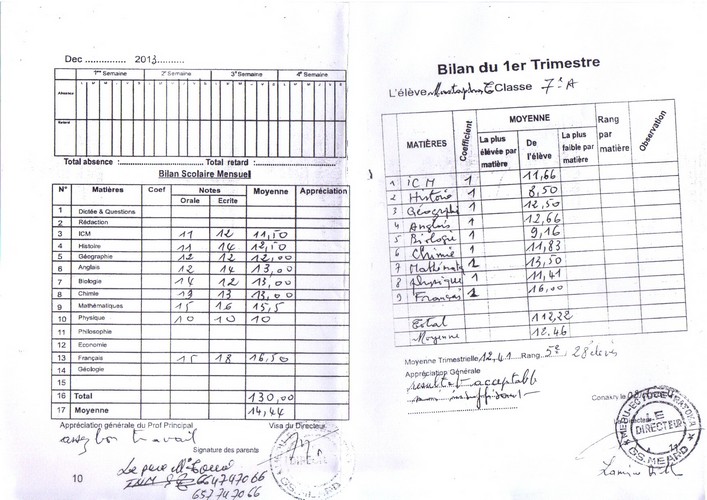 Dec .............. 2013...........
1ère Semaine 2e Semaine 3e Semaine 4e Semaine
Absence
Retard
Total absence :........................... Total retard :...........................
Bilan Scolaire Mensuel
N° Matières Coef Notes Moyenne Appréciation
Orale Ecrite
1 Dictée & Questions
2 Rédaction
3 ICM 11 12 11,50
4 Histoire 11 14 12,50
5 Géographie 12 12 12,00
6 Anglais 12 14 13,00
7 Biologie 14 12 13,00
8 Chimie 13 13 13,00
9 Mathématiques 15 16 15,5
10 Physique 10 10 10
11 Philosophie
12 Economie
13 Français 15 18 16,50
14 Géologie
15
16 Total 130,00
17 Moyenne 14,44
Appréciation générale du Prof Principal Visa du Directeur
assez bon travail
Signature des parents
Le père
664747066
657747066
10
Bilan du 1er Trimestre
L'élève Mustapha Classe 7e A
MATIÈRES Coefficient MOYENNE Rang par matière Observation
La plus élévée par matière De l'élève La plus faible par matière
1 ICM 1 11,66
2 Histoire 1 8,50
3 Géographi 1 12,50
4 Anglais 1 12,66
5 Biologie 1 9,16
6 Chimie 1 11,83
7 Mathémat 1 13,50
8 Physique 1 11,41
9 Français 1 16,00
Total 112,22
Moyenne 12.46
Moyenne Trimestrielle 12,41 Rang 5e / 28 élèves
Appréciation Générale
resultat acceptable
mais insuffisant
Conakry le
Le Directeur
LE DIRECTEUR
GS.MEARD